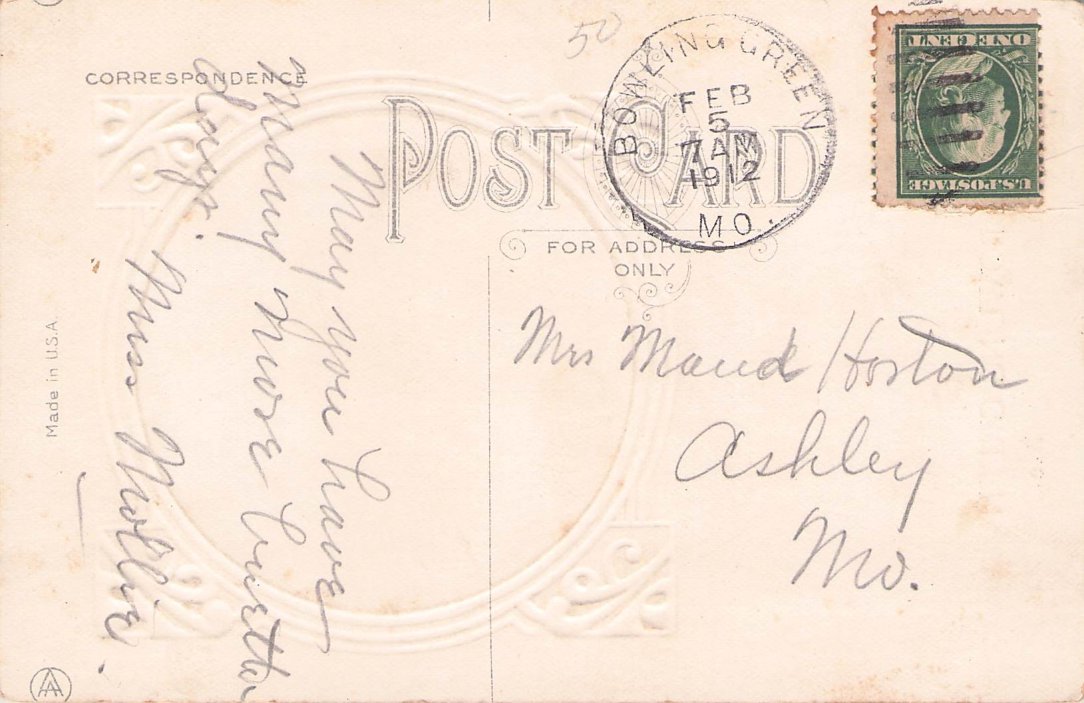 50
CORRESPONDENCE
POST CARD
FOR ADDRESS
ONLY
BOWLING GREEN
FEB
5
7 AM
1912
MO.
ONE CENT
U.S. POSTAGE
May you have
Many more
days.
Miss Mollie.
Mrs Maud Horton
Ashley
Mo.
Made in U.S.A.
AA